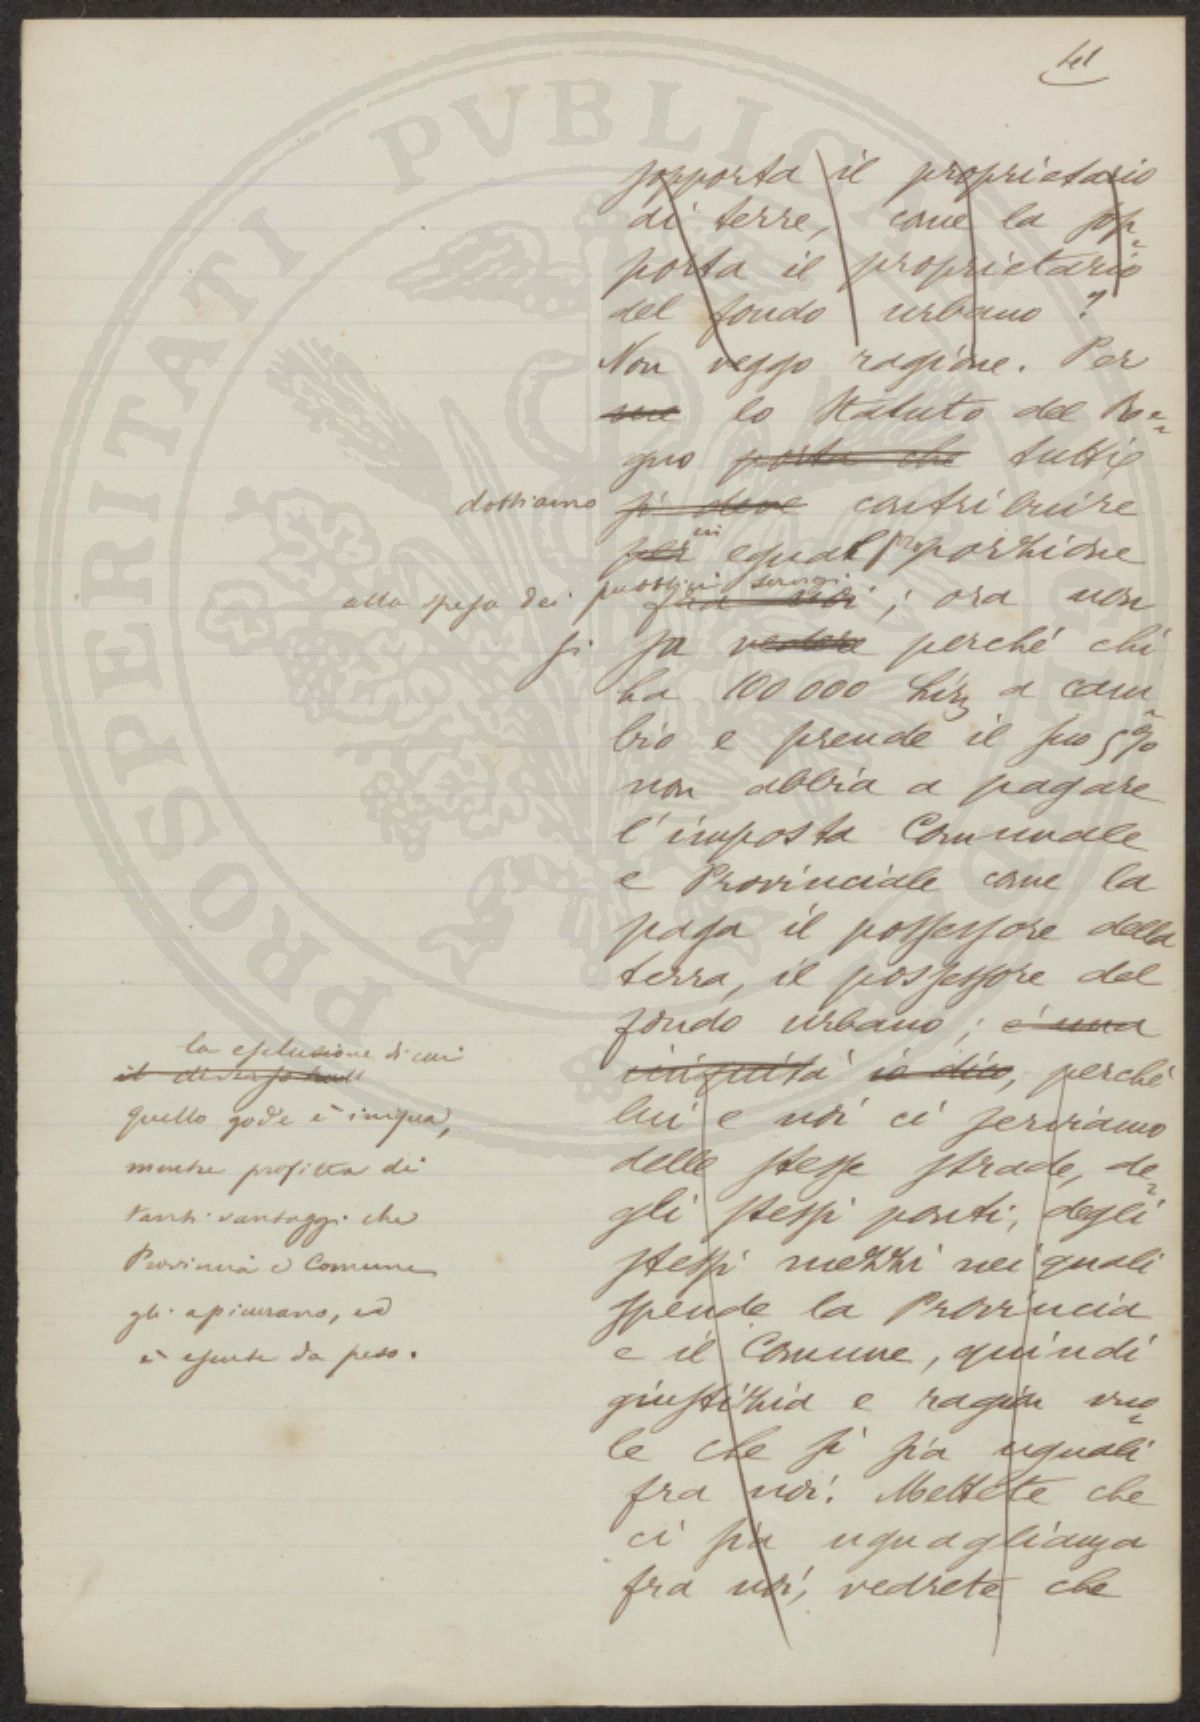 41
sopporta il proprietario
di terre, come la sop-
porta il proprietario
del fondo urbano?
Non veggo ragione. Per
me lo Statuto del Re-
gno porta che tutti
dobbiamo si deve contribuire
per in egual proporzione
alla spesa dei pubblici servizi fra noi; ora non
si sa vedere perché chi
ha 100000 a cam-
bio e prende il suo 5 %
non abbia a pagare
l'imposta Comunale
e Provinciale come la
paga il possessore della
terra, il possessore del
fondo urbano; è una
iniquità io dico, perché
lui e noi ci serviamo
delle stesse strade, de-
gli stessi ponti, degli
stessi mezzi nei quali
spende la Provincia
e il Comune, quindi
giustizia e ragion vuo-
le che si sia uguali
fra noi. Mettete che
ci sia uguaglianza
fra noi, vedrete che
la esclusione di cui
quello gode è iniqua,
mentre profitta di
tanti vantaggi che
Provincia e Comune
gli assicurano, ed
è esente da peso.
PROSPERITATI PVBLICAE